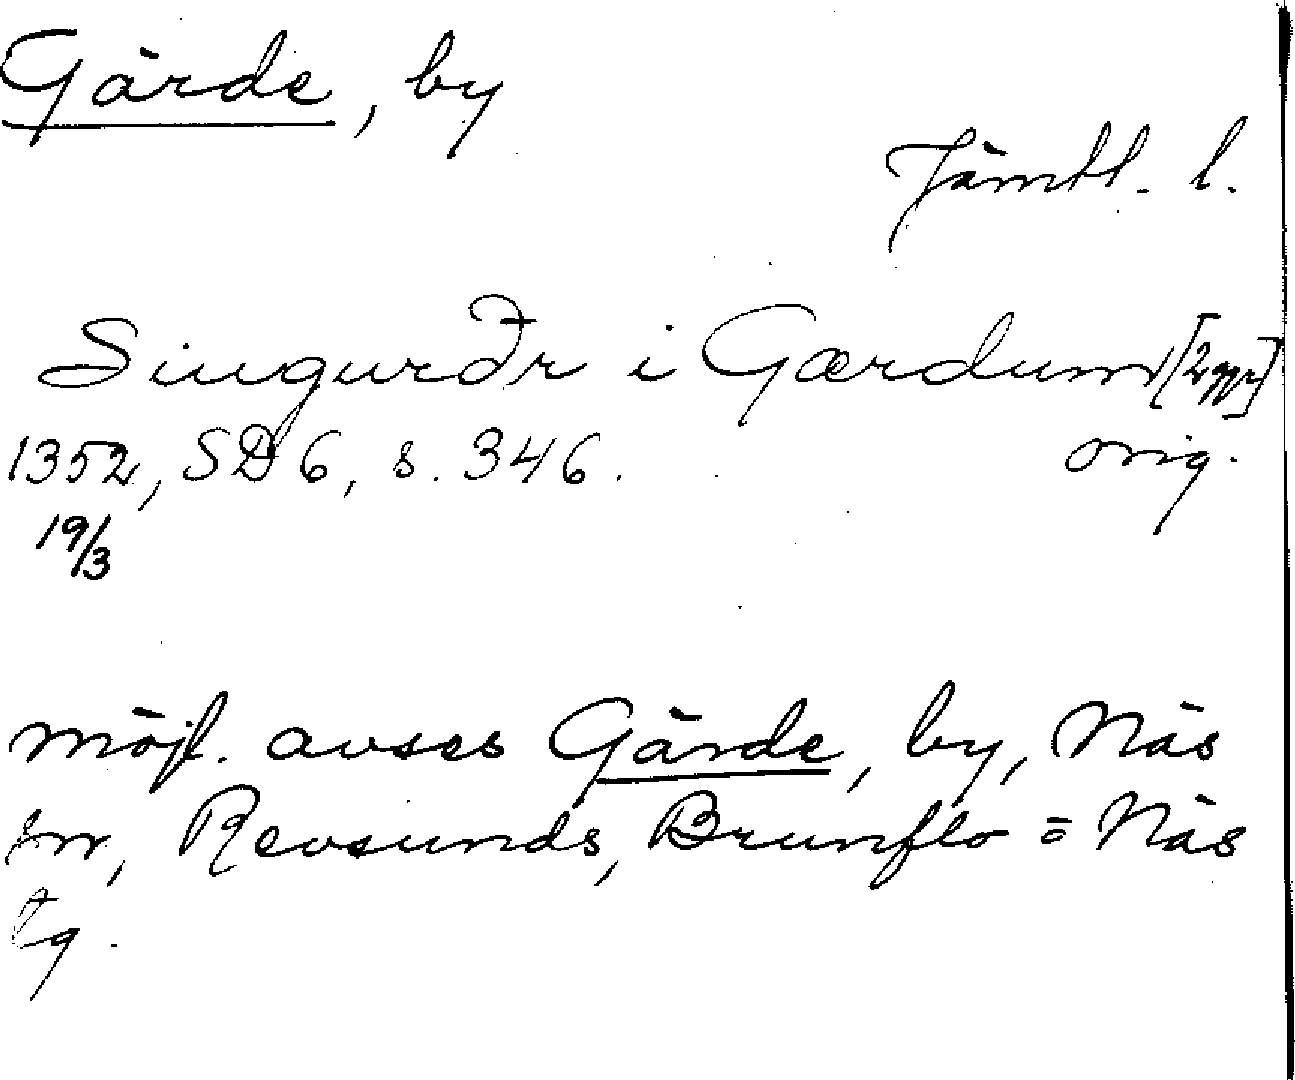 Gärde, by
Jämtl. l.
Siugurðr i Gærdum [2 ggr]
1352, SD 6, s. 346. orig.
19/3
Möjl. avses Gärde, by, Näs
sn, Revsunds, Brunflo o Näs
tg.